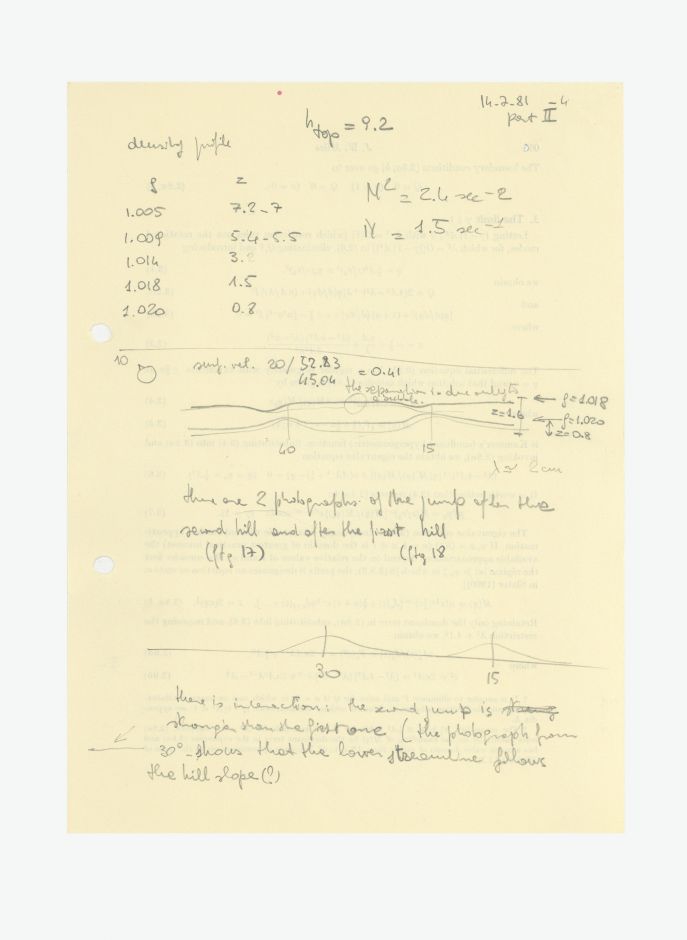 14-7-81
part II-4
h top = 9.2
density profile
ρ z
1.005 7.2-7
1.009 5.4-5.5
1.014 3.2
1.018 1.5
1.020 0.8
N² = 2.4 sec-2
N = 1.5 sec-1
10
surf. vel. 20/ 52.83 = 0.41
45.04
the separation is due only to
ρ=1.018
z=1.6
ρ=1.020
z=0.8
40 15
λ ≈ 2cm
there are 2 photographs of the jump after the
second hill and after the first hill
(ftg 17) (ftg 18
30 15
there is interaction: the second jump is strong
stronger than the first one ( the photograph from
30°-shows that the lower streamline follows
the hill slope (?)